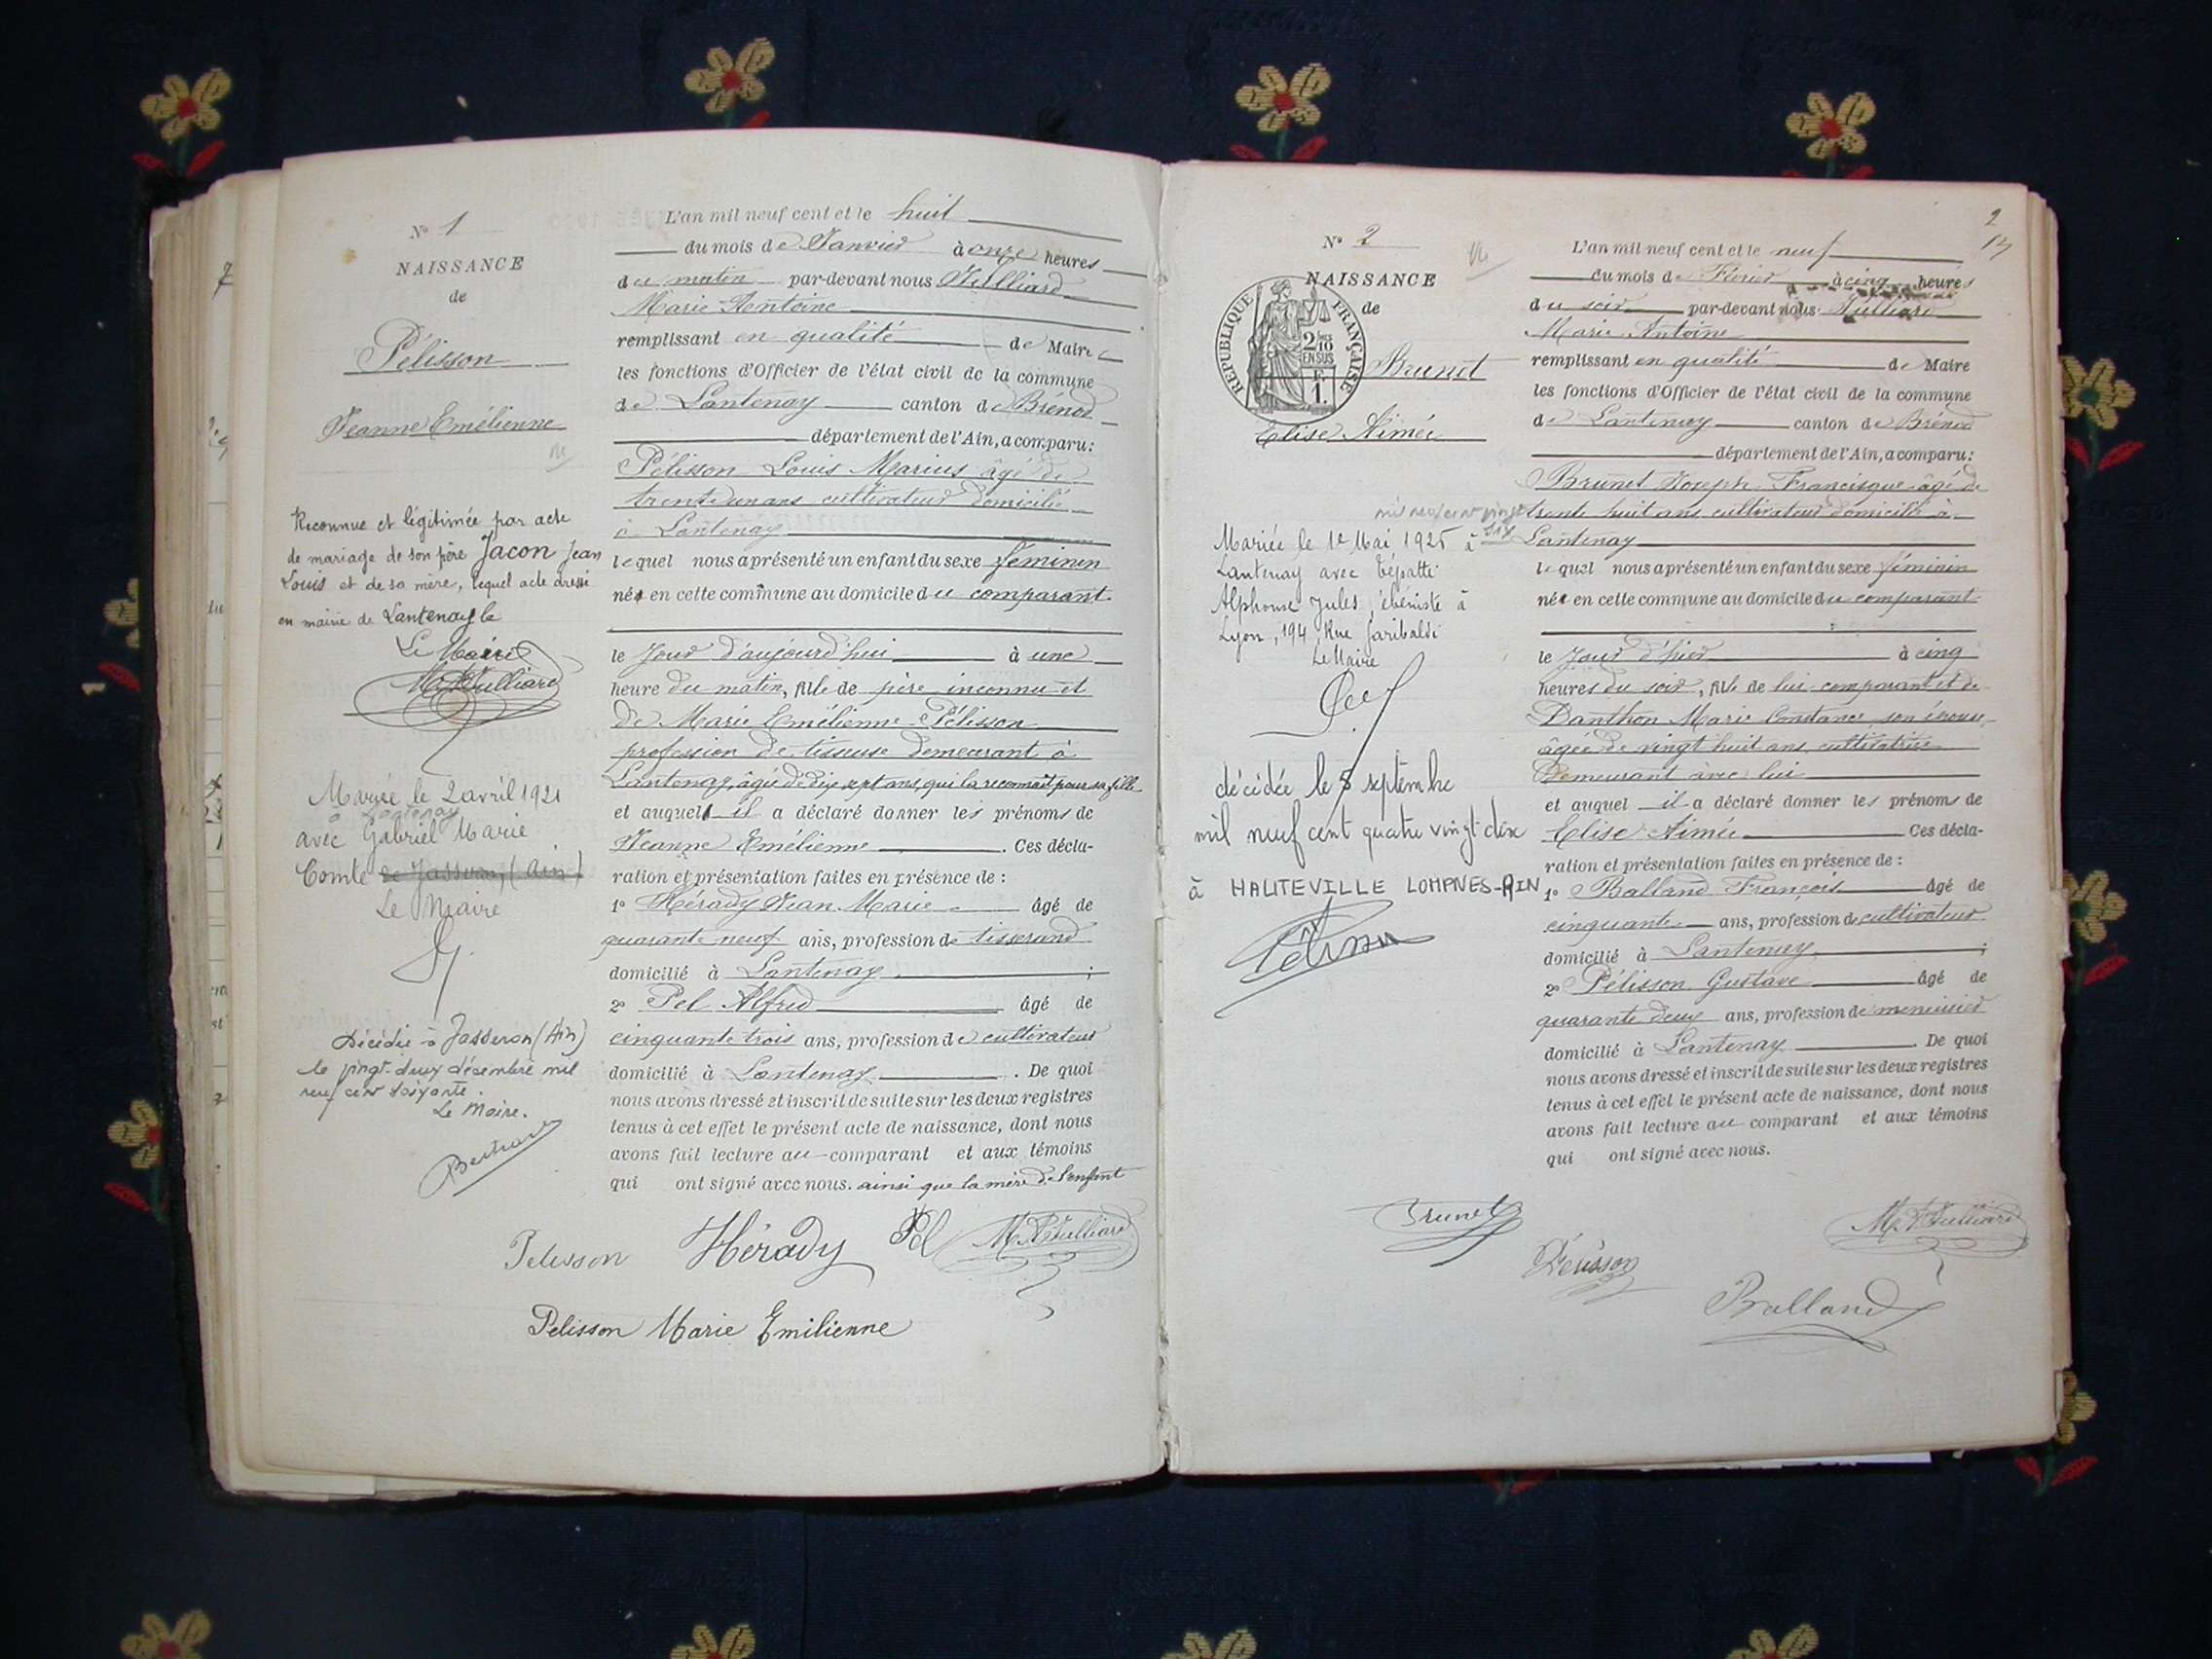 N° 1
NAISSANCE
de
Pélisson
Jeanne Emélienne
Reconnue et légitimée par acte
de mariage de son père Jacon Jean
Louis et de sa mère, lequel acte dressé
en mairie de Lantenay le
Le Maire
M. A. Julliard
Mariée le 2 avril 1921
à Lantenay
avec Gabriel Marie
Comte de Jasseron, (Ain)
Le Maire
Décédée à Jasseron (Ain)
le vingt-deux décembre mil
neuf cent soixante.
Le Maire.
L'an mil neuf cent et le huit
du mois de Janvier à onze heures
du matin par-devant nous Julliard
Marie Antoine
remplissant en qualité de Maire
les fonctions d'Officier de l'état civil de la commune
de Lantenay canton de Brénod
département de l'Ain, a comparu:
Pélisson Louis Marius âgé de
trente un ans cultivateur domicilié
à Lantenay
lequel nous a présenté un enfant du sexe féminin
née en cette commune au domicile du comparant
le Jour d'aujourd'hui à une
heure du matin, fille de père inconnu et
de Marie Emélienne Pélisson
profession de tisseuse demeurant à
Lantenay, âgée de dix sept ans, qui la reconnaît pour sa fille
et auquel il a déclaré donner les prénoms de
Jeanne Emélienne . Ces décla-
ration et présentation faites en présence de :
1° Hérady Jean Marie âgé de
quarante neuf ans, profession de tisserand
domicilié à Lantenay ;
2° Pel Alfred âgé de
cinquante trois ans, profession de cultivateur
domicilié à Lantenay . De quoi
nous avons dressé et inscrit de suite sur les deux registres
tenus à cet effet le présent acte de naissance, dont nous
avons fait lecture au comparant et aux témoins
qui ont signé avec nous. ainsi que la mère de l'enfant
Pelisson Hérady Pel M. A. Julliard
Pelisson Marie Emilienne
2
N° 2
NAISSANCE
de
REPUBLIQUE FRANÇAISE
2/10 EN SUS
F. 1.
Brunet
Elise Aimée
mil neuf cent vingt
six
Mariée le 1e Mai 1925 à
Lantenay avec Tépatti
Alphonse Jules, ébéniste à
Lyon, 194, Rue Garibaldi
Le Maire
décédée le 8 septembre
mil neuf cent quatre vingt dix
à HAUTEVILLE LOMPNES-AIN
L'an mil neuf cent et le neuf
du mois de Février à cinq heures
du soir par-devant nous Julliard
Marie Antoine
remplissant en qualité de Maire
les fonctions d'Officier de l'état civil de la commune
de Lantenay canton de Brénod
département de l'Ain, a comparu:
Brunet Joseph Francisque âgé de
trente huit ans cultivateur domicilié à
Lantenay
lequel nous a présenté un enfant du sexe féminin
née en cette commune au domicile du comparant
le Jour d'hier à cinq
heures du soir, fille de lui comparant et de
Banthon Marie Constance son épouse
âgée de vingt huit ans, cultivatrice
demeurant avec lui
et auquel il a déclaré donner les prénoms de
Elise Aimée Ces décla-
ration et présentation faites en présence de :
1° Balland François âgé de
cinquante ans, profession de cultivateur
domicilié à Lantenay ;
2° Pélisson Gustave âgé de
quarante deux ans, profession de menuisier
domicilié à Lantenay . De quoi
nous avons dressé et inscrit de suite sur les deux registres
tenus à cet effet le présent acte de naissance, dont nous
avons fait lecture au comparant et aux témoins
qui ont signé avec nous.
Brunet M. A. Julliard
Pélisson
Balland